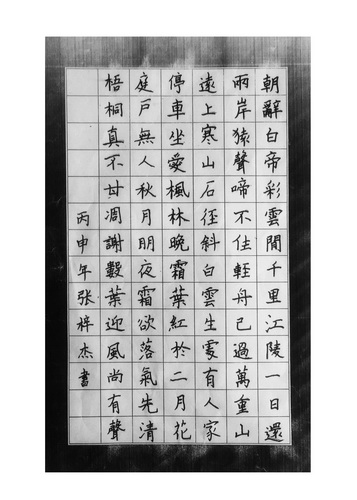 朝辭白帝彩雲間千里江陵一日還
兩岸猿聲啼不住輕舟已過萬重山
遠上寒山石徑斜白雲生處有人家
停車坐愛楓林晚霜葉紅於二月花
庭戶無人秋月明夜霜欲落氣先清
梧桐真不甘凋謝數葉迎風尚有聲
丙申年张梓杰書